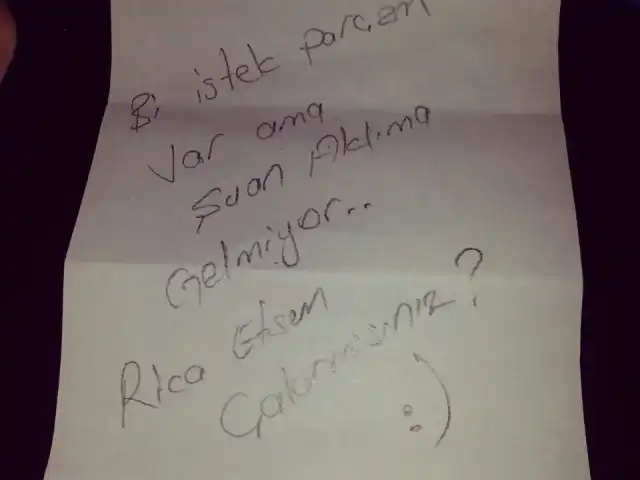 Bi istek parçam
Var ama
Şuan Aklıma
Gelmiyor..
Rica Etsem
Çalarmısınız?
:)